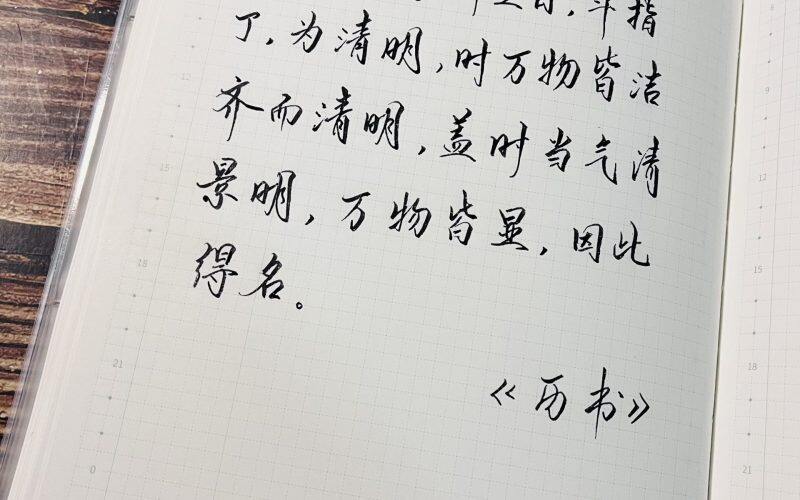 日，斗指
了，为清明，时万物皆洁
齐而清明，盖时当气清
景明，万物皆显，因此
得名。
《历书》
12
15
18
21
0
9
12
15
18
21